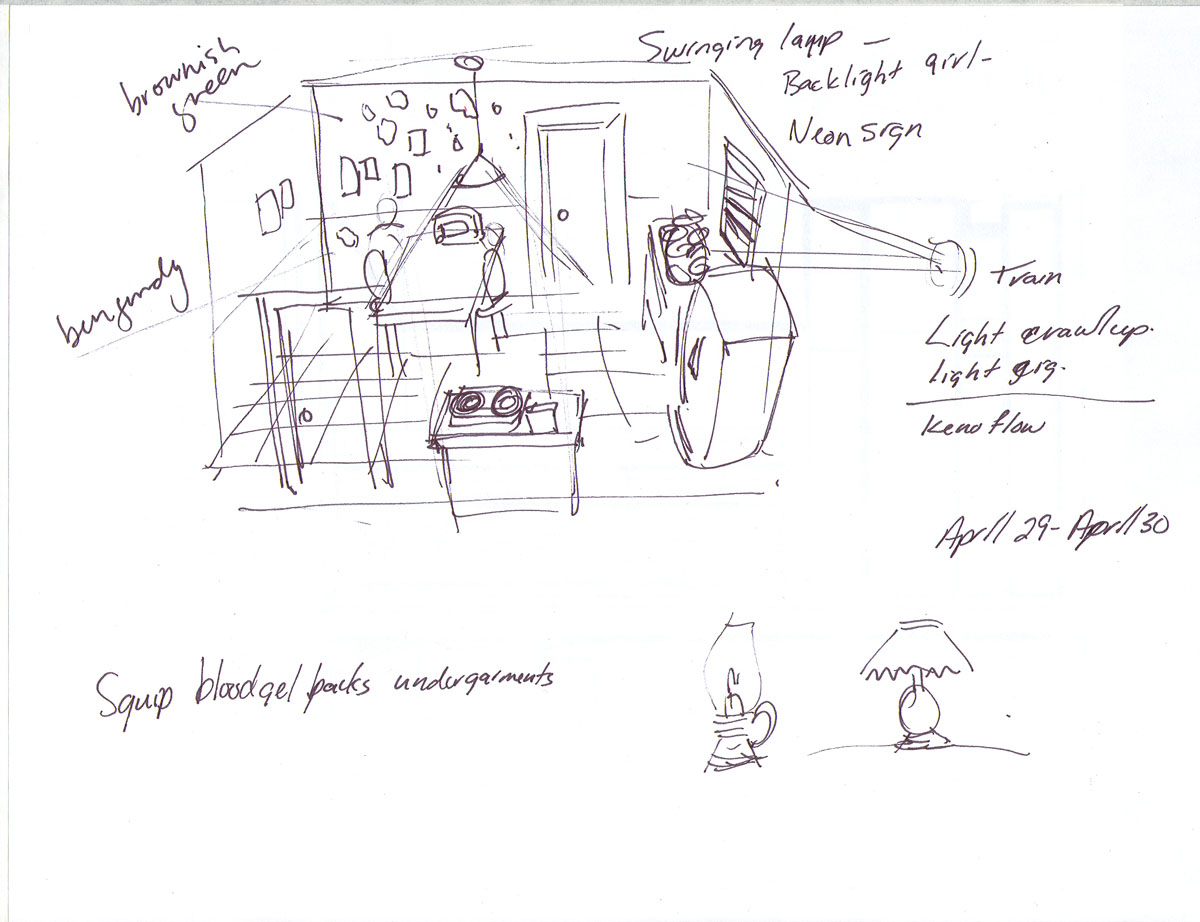 brownish
green
Swinging lamp -
Backlight girl-
Neon sign
burgundy
Train
Light crawl up.
light gig.
Keno flow
April 29- April 30
Squip blood gel packs undergarments